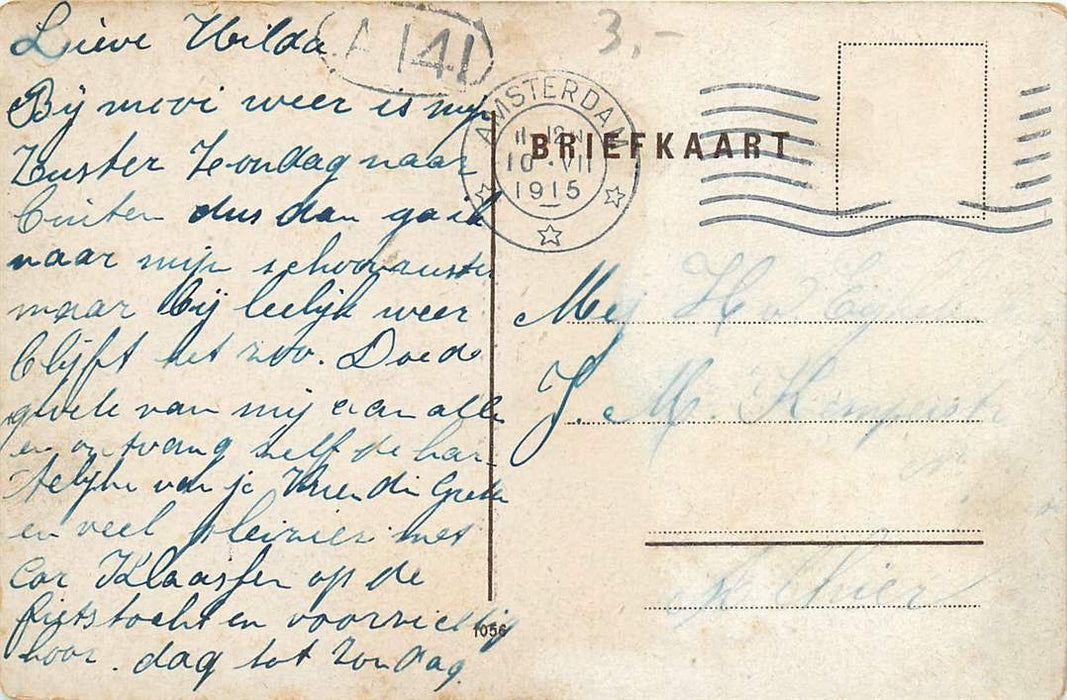 Lieve Hilda
A 141
3,-
Bij mooi weer is mijn
Zuster Zondag naar
buiten dus dan ga ik
naar mijn schoonzuster
maar bij leelijk weer
blijft het zoo. Doe de
groete van mij aan alle
en ontvang zelf de har
telijke van je Vriendin Greta
en veel pleizier met
Cor Klaassen op de
fietstocht en voorzichtig
hoor. dag tot Zondag.
AMSTERDAM
11-12
10·VII
1915
BRIEFKAART
Mej H v
J. M. Kemper
Alhier
1056